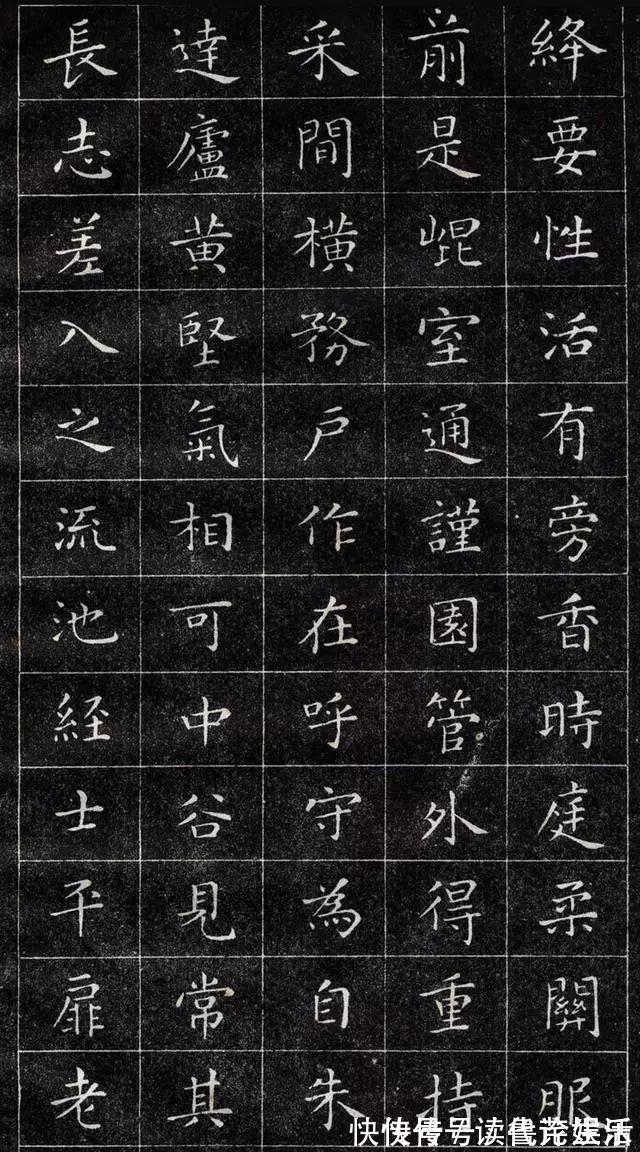 絳要性活有旁香時庭柔關服
前是崐室通謹園管外得重持
采間橫務戶作在呼守為自朱
達廬黃堅氣相可中谷見常其
長志差入之流池經士平扉老